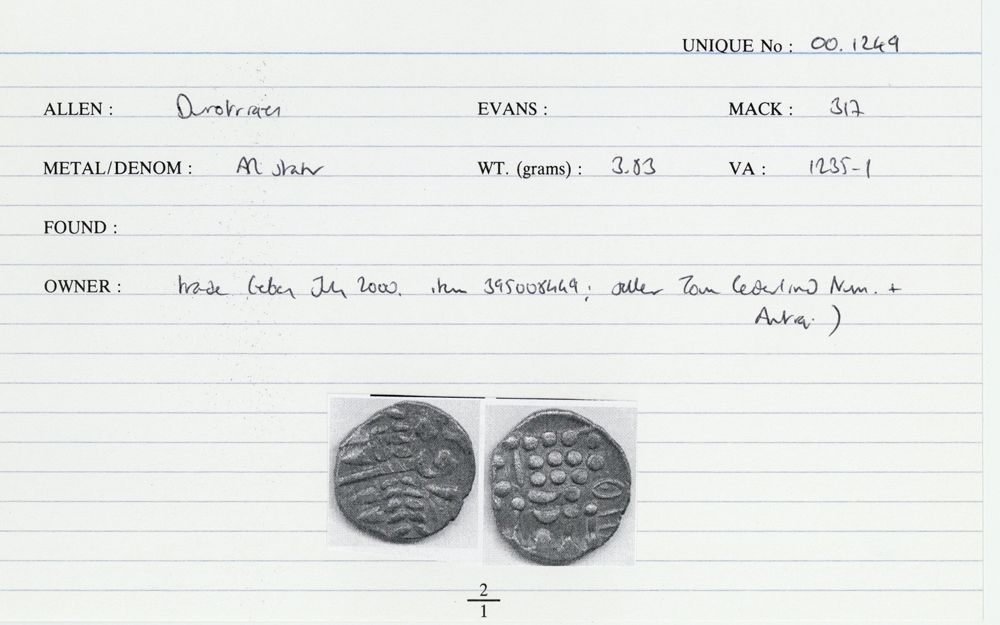 UNIQUE No : 00.1249
ALLEN : Durotriges EVANS : MACK : 317
METAL/DENOM : AR stater WT. (grams) : 3.83 VA : 1235-1
FOUND :
OWNER : trade (eBay July 2000. item 395008449; seller Tom Cederlind Num. +
Antiq. )
2
1